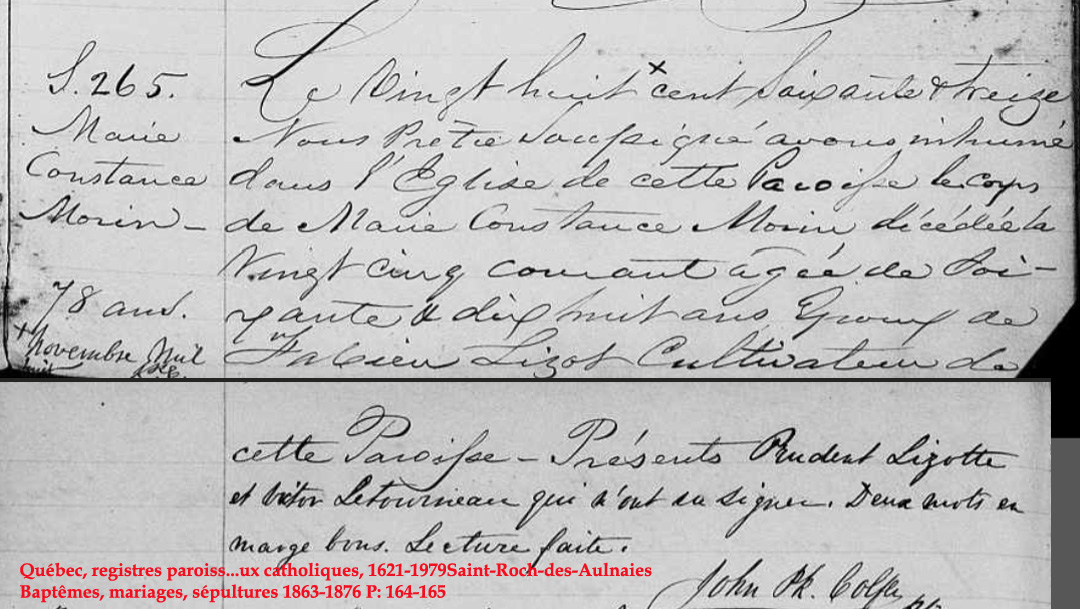 S. 265.
Marie
Constance
Morin –
78 ans.
+
novembre mil
huit
Le Vingt huit × cent Soixante & treize
Nous Prêtre Soussigné avons inhumé
dans l'Eglise de cette Paroisse le corps
de Marie Constance Morin décédée le
Vingt cinq courant agée de Soi-
xante & dix huit ans Epouse de
Fabien Lizot Cultivateur de
cette Paroisse – Présents Prudent Lizotte
et Victor Letourneau qui n'ont su signer. Deux mots en
marge bons. Lecture faite.
John Ph. Colfer
Québec, registres paroiss...ux catholiques, 1621-1979Saint-Roch-des-Aulnaies
Baptêmes, mariages, sépultures 1863-1876 P: 164-165